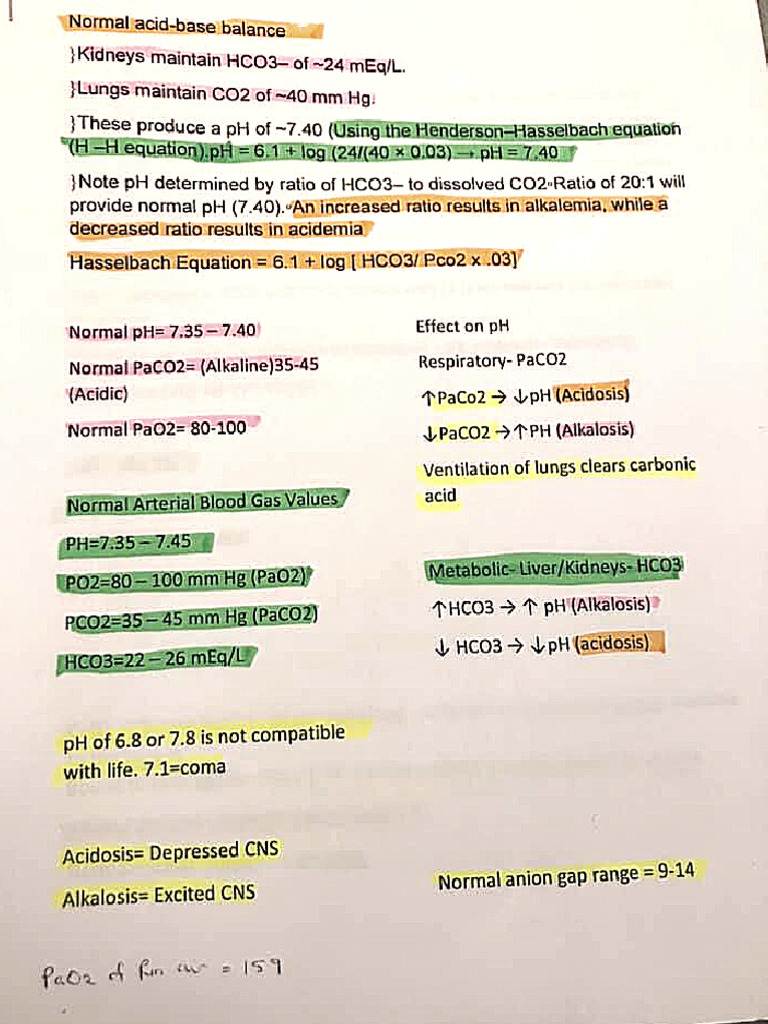 Normal acid-base balance
}Kidneys maintain HCO3– of ~24 mEq/L.
}Lungs maintain CO2 of ~40 mm Hg.
}These produce a pH of ~7.40 (Using the Henderson–Hasselbach equation
(H –H equation).pH = 6.1 + log (24/(40 × 0.03) → pH = 7.40
}Note pH determined by ratio of HCO3– to dissolved CO2◦Ratio of 20:1 will
provide normal pH (7.40).◦An increased ratio results in alkalemia, while a
decreased ratio results in acidemia
Hasselbach Equation = 6.1 + log [ HCO3/ Pco2 x .03]
Normal pH= 7.35 – 7.40
Normal PaCO2= (Alkaline)35-45
(Acidic)
Normal PaO2= 80-100
Normal Arterial Blood Gas Values
PH=7.35 – 7.45
PO2=80 – 100 mm Hg (PaO2)
PCO2=35 – 45 mm Hg (PaCO2)
HCO3=22 – 26 mEq/L
pH of 6.8 or 7.8 is not compatible
with life. 7.1=coma
Acidosis= Depressed CNS
Alkalosis= Excited CNS
Effect on pH
Respiratory- PaCO2
↑PaCo2 → ↓pH (Acidosis)
↓PaCO2 →↑PH (Alkalosis)
Ventilation of lungs clears carbonic
acid
Metabolic- Liver/Kidneys- HCO3
↑HCO3 → ↑ pH (Alkalosis)
↓ HCO3 → ↓pH (acidosis)
Normal anion gap range = 9-14
PaO2 of = 159